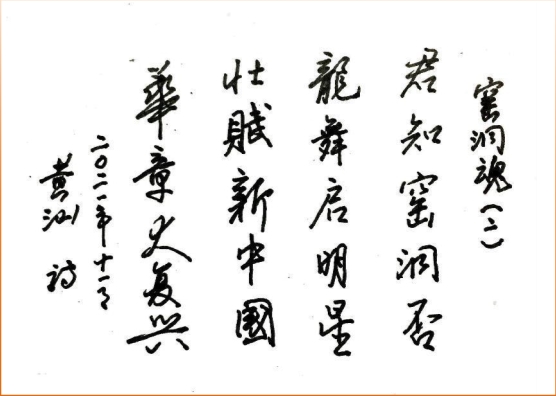 窑洞魂（二）
君知窑洞否
龍舞启明星
壮賦新中國
華章大复兴
二〇二一年十一月
黄洲 诗